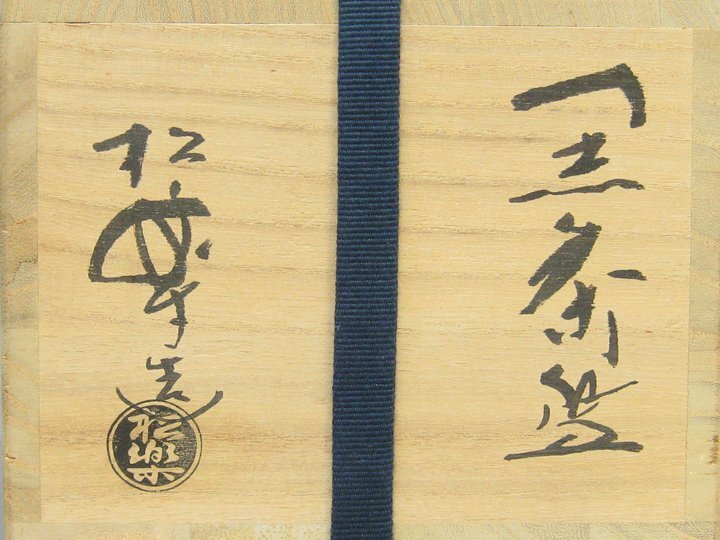 黒茶盌
松楽造
松楽